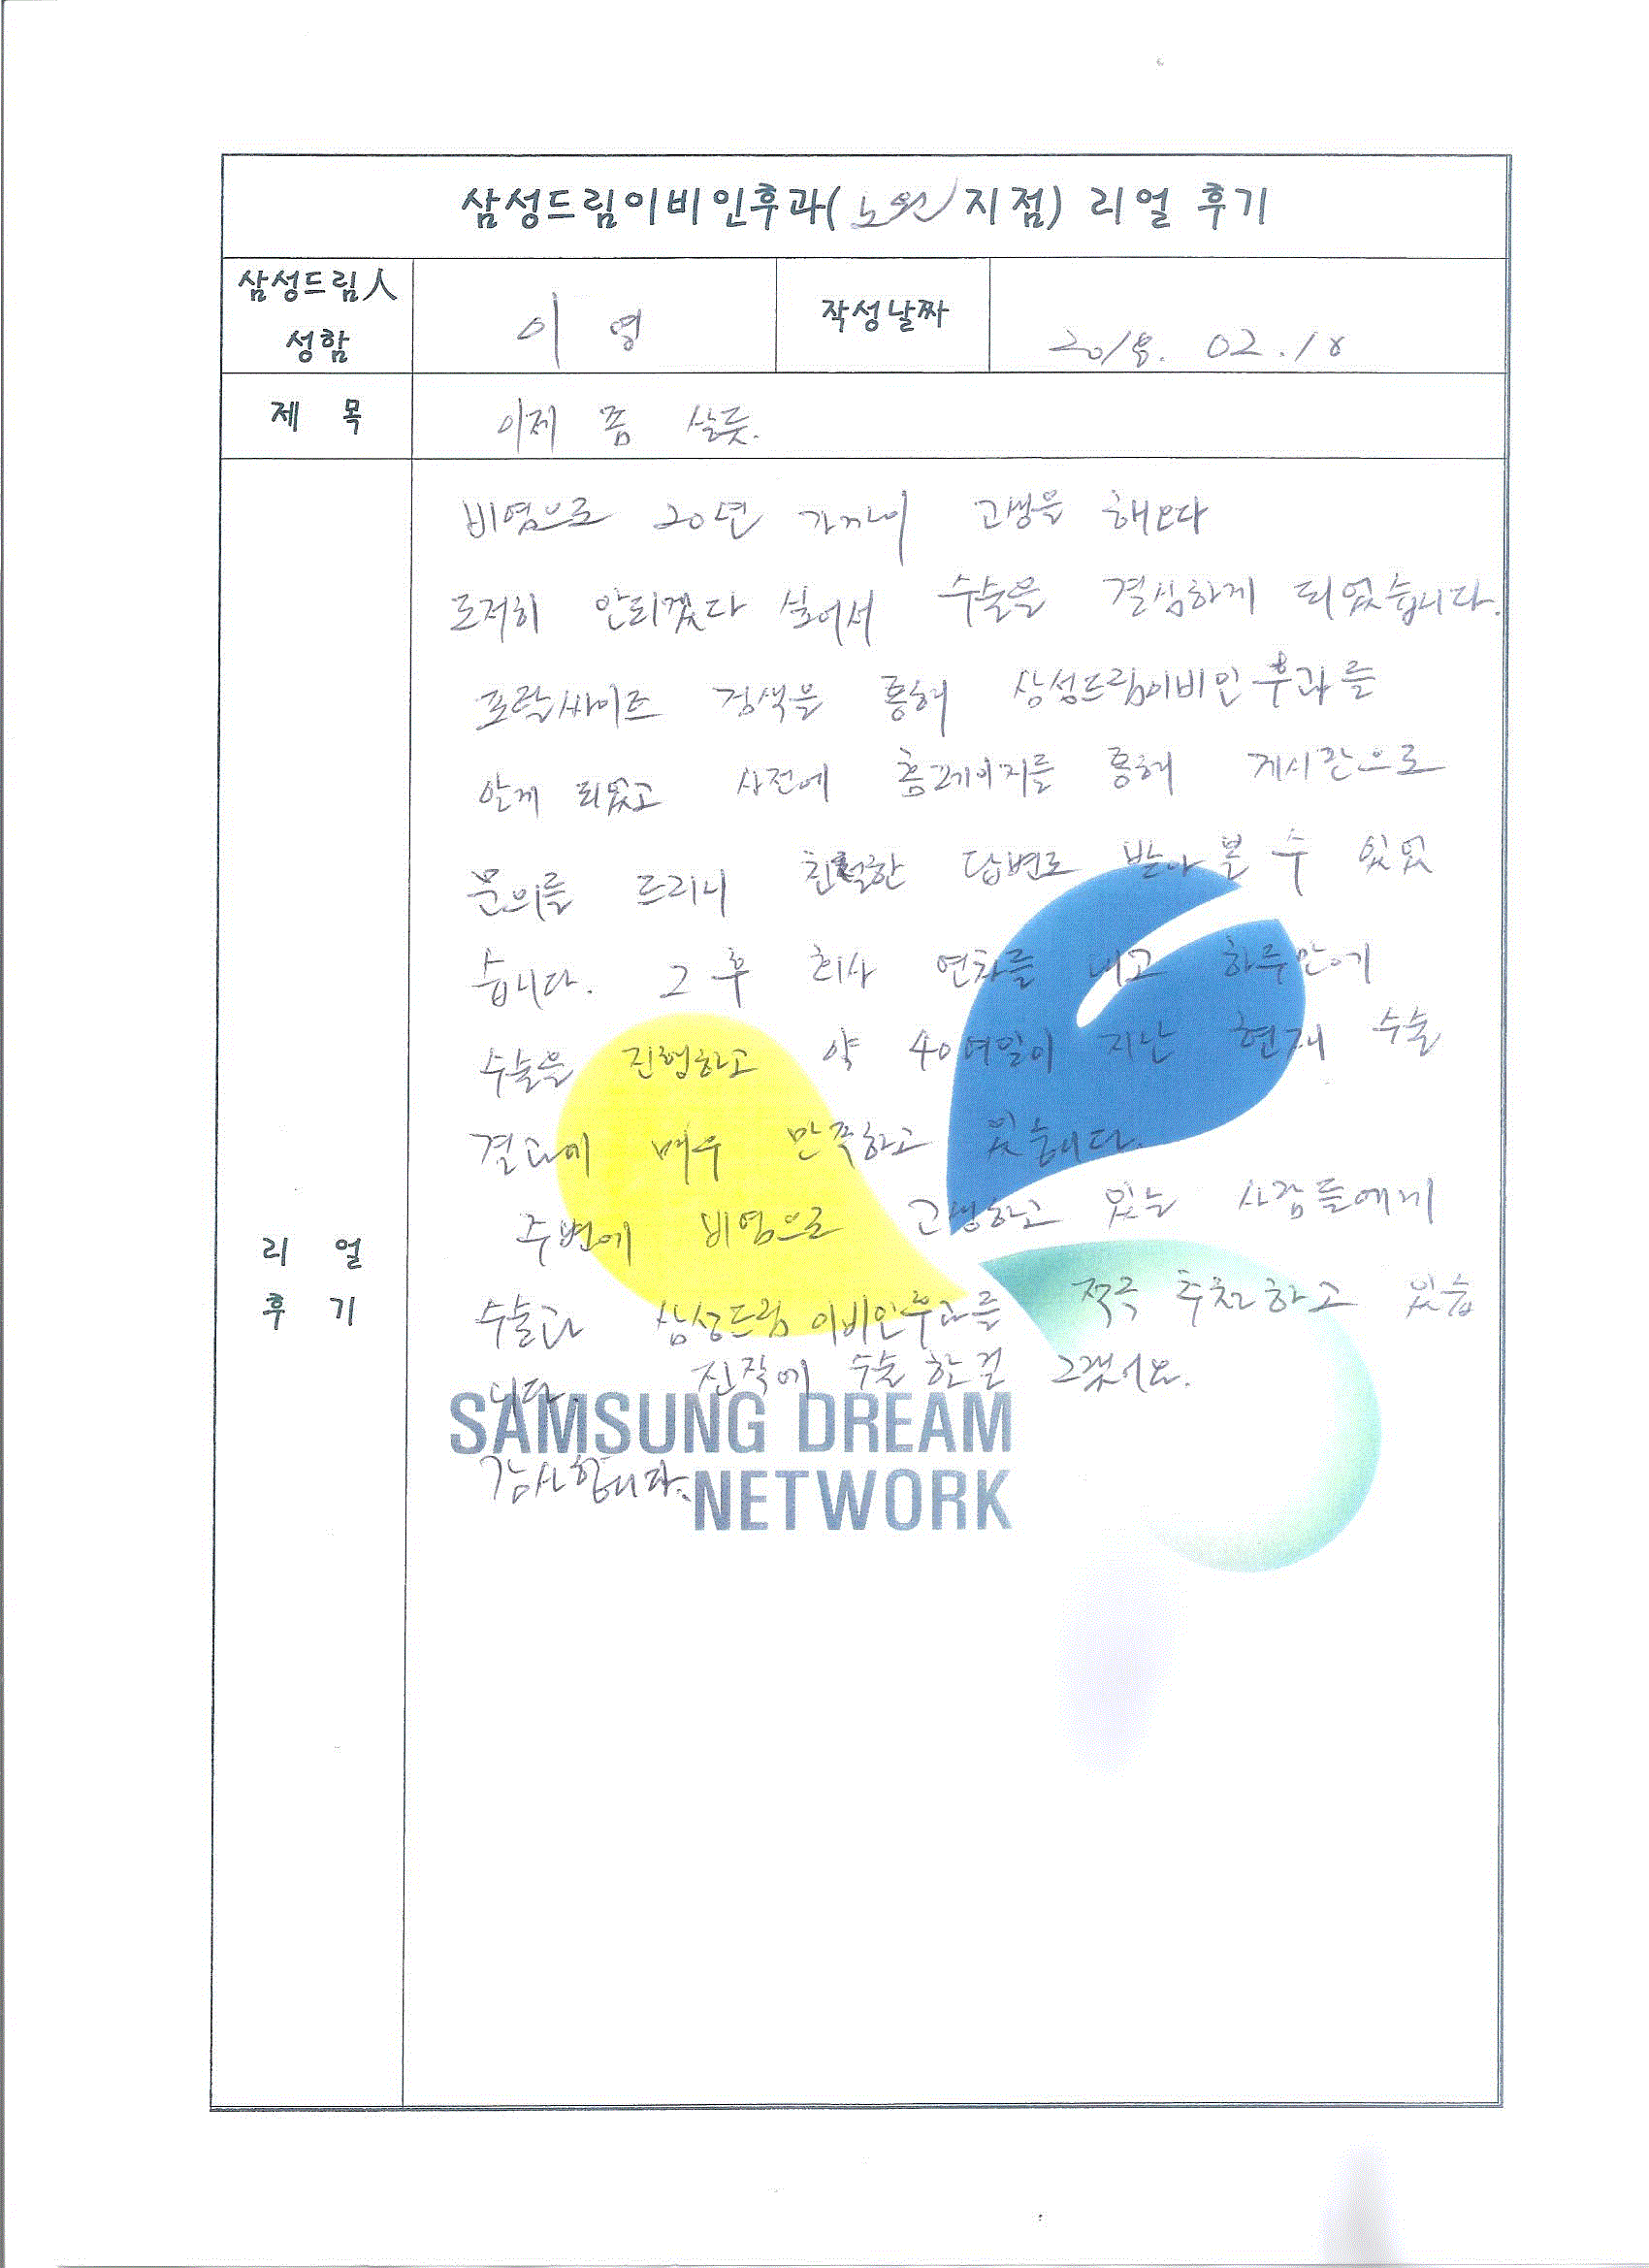 삼성드림이비인후과(노원지점) 리얼 후기
삼성드림人 성함
이 영
작성날짜
2018. 02. 18
제 목
이제 좀 살듯.
리 얼 후 기
비염으로 20년 가까이 고생을 해오다
도저히 안되겠다 싶어서 수술을 결심하게 되었습니다.
포탈싸이트 검색을 통해 삼성드림이비인후과를
알게 되었고 사전에 홈페이지를 통해 게시판으로
문의를 드리니 친절한 답변도 받아 볼 수 있었
습니다. 그 후 회사 연차를 내고 하루만에
수술을 진행하고 약 40여일이 지난 현재 수술
결과에 매우 만족하고 있습니다.
주변에 비염으로 고생하고 있는 사람들에게
수술과 삼성드림이비인후과를 적극 추천하고 있습
니다. 진작에 수술 한걸 그랬어요.
감사합니다.
SAMSUNG DREAM
NETWORK